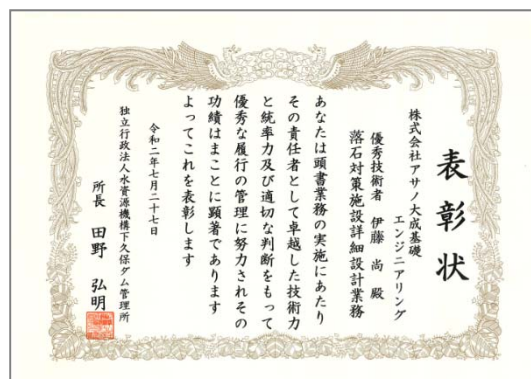 表彰状
株式会社アサノ大成基礎
エンジニアリング
優秀技術者 伊藤 尚 殿
落石対策施設詳細設計業務
あなたは頭書業務の実施にあたり
その責任者として卓越した技術力
と統率力及び適切な判断をもって
優秀な履行の管理に努力されその
功績はまことに顕著であります
よってこれを表彰します
令和二年七月二十七日
独立行政法人水資源機構下久保ダム管理所
所長 田野 弘明